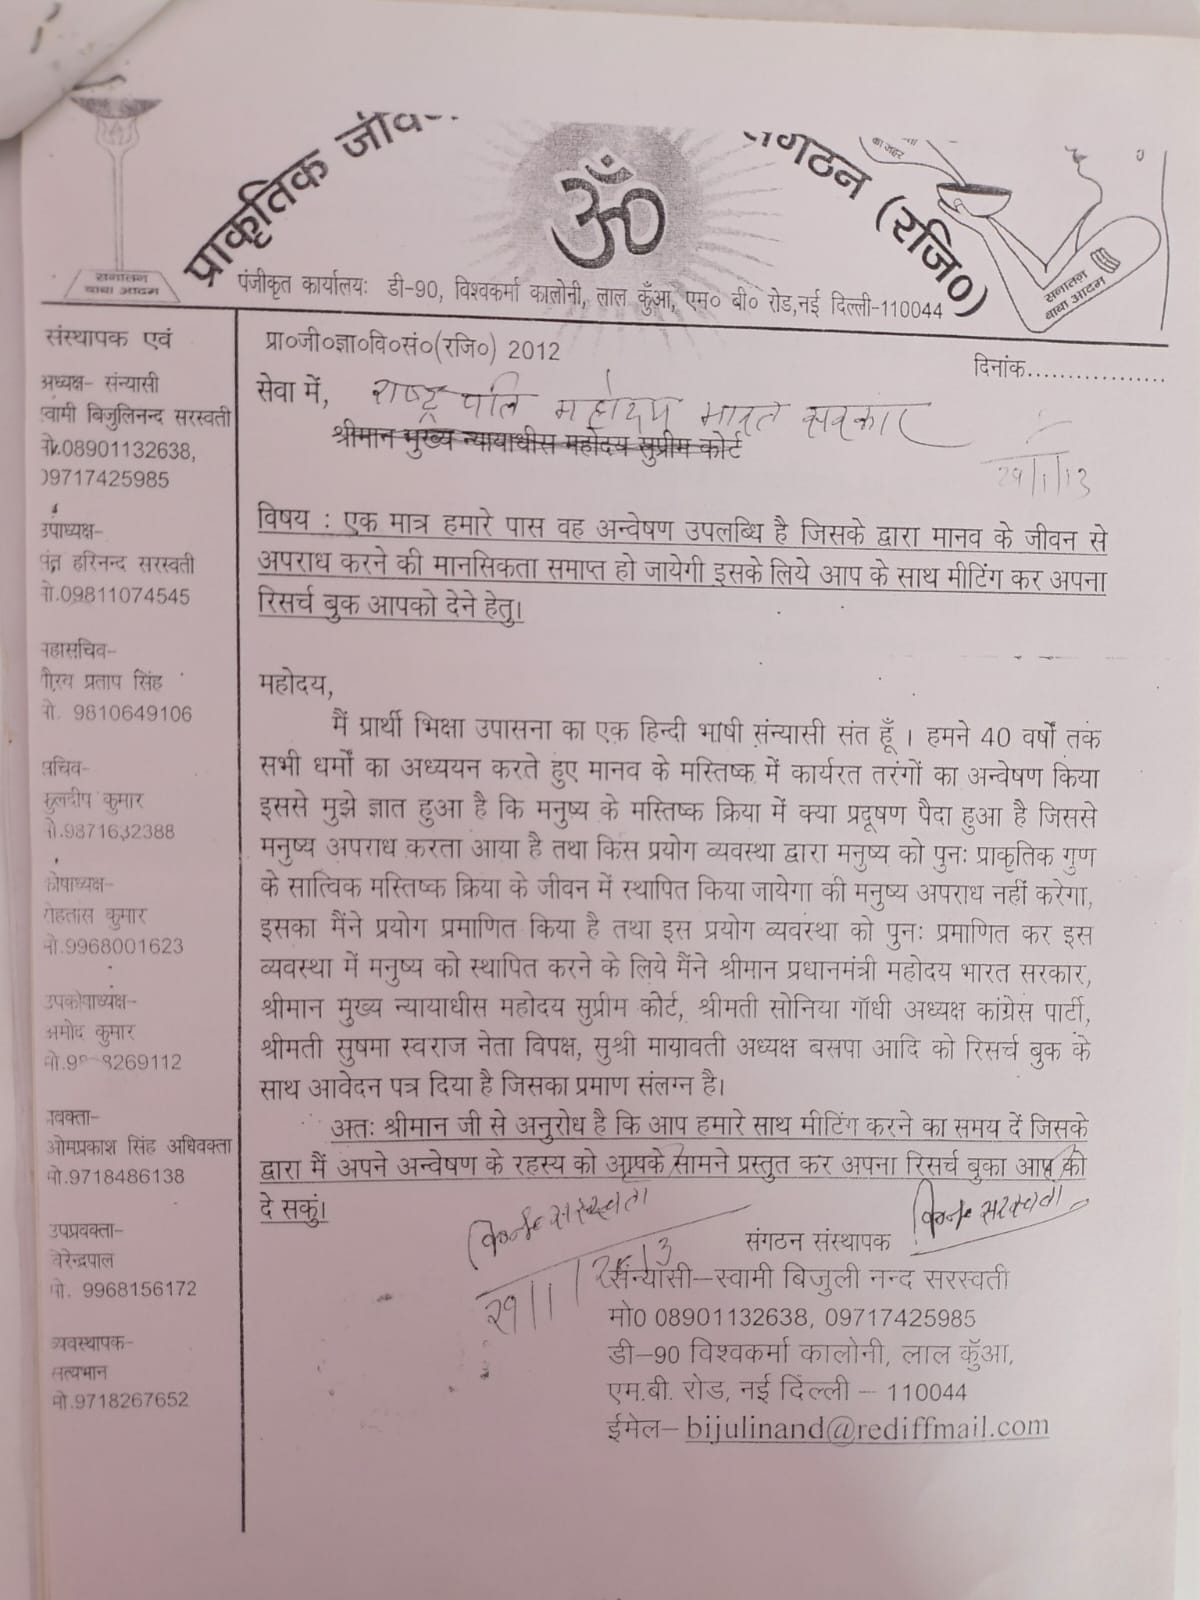 प्राकृतिक
संगठन (रजि०)
सनातन
बाबा आदम
सनातन
बाबा आदम
पंजीकृत कार्यालयः डी-90, विश्वकर्मा कालोनी, लाल कुँआ, एम० बी० रोड,नई दिल्ली-110044
संस्थापक एवं
अध्यक्ष- संन्यासी
स्वामी बिजुलिनन्द सरस्वती
मो.08901132638,
09717425985
उपाध्यक्ष-
हरिनन्द सरस्वती
मो.09811074545
महासचिव-
प्रताप सिंह
मो. 9810649106
सचिव-
कुलदीप कुमार
मो.9871632388
कोषाध्यक्ष-
रोहतास कुमार
मो.9968001623
उपकोषाध्यक्ष-
अमोद कुमार
8269112
प्रवक्ता-
ओमप्रकाश सिंह अधिवक्ता
मो.9718486138
उपप्रवक्ता-
वीरेन्द्रपाल
मो. 9968156172
व्यवस्थापक-
सत्यभान
मो.9718267652
प्रा०जी०ज्ञा०वि०सं०(रजि०) 2012
दिनांक.................
सेवा में, राष्ट्रपति महोदय भारत सरकार
श्रीमान मुख्य न्यायाधीस महोदय सुप्रीम कोर्ट
29/1/13
विषय : एक मात्र हमारे पास वह अन्वेषण उपलब्धि है जिसके द्वारा मानव के जीवन से
अपराध करने की मानसिकता समाप्त हो जायेगी इसके लिये आप के साथ मीटिंग कर अपना
रिसर्च बुक आपको देने हेतु।
महोदय,
मैं प्रार्थी भिक्षा उपासना का एक हिन्दी भाषी संन्यासी संत हूँ । हमने 40 वर्षों तक
सभी धर्मों का अध्ययन करते हुए मानव के मस्तिष्क में कार्यरत तरंगों का अन्वेषण किया
इससे मुझे ज्ञात हुआ है कि मनुष्य के मस्तिष्क क्रिया में क्या प्रदूषण पैदा हुआ है जिससे
मनुष्य अपराध करता आया है तथा किस प्रयोग व्यवस्था द्वारा मनुष्य को पुनः प्राकृतिक गुण
के सात्विक मस्तिष्क क्रिया के जीवन में स्थापित किया जायेगा की मनुष्य अपराध नहीं करेगा,
इसका मैंने प्रयोग प्रमाणित किया है तथा इस प्रयोग व्यवस्था को पुनः प्रमाणित कर इस
व्यवस्था में मनुष्य को स्थापित करने के लिये मैंने श्रीमान प्रधानमंत्री महोदय भारत सरकार,
श्रीमान मुख्य न्यायाधीस महोदय सुप्रीम कोर्ट, श्रीमती सोनिया गॉधी अध्यक्ष कांग्रेस पार्टी,
श्रीमती सुषमा स्वराज नेता विपक्ष, सुश्री मायावती अध्यक्ष बसपा आदि को रिसर्च बुक के
साथ आवेदन पत्र दिया है जिसका प्रमाण संलग्न है।
अतः श्रीमान जी से अनुरोध है कि आप हमारे साथ मीटिंग करने का समय दें जिसके
द्वारा मैं अपने अन्वेषण के रहस्य को आपके सामने प्रस्तुत कर अपना रिसर्च बुका आप को
दे सकुं।
सरस्वती
29/1/2013
सरस्वती
संगठन संस्थापक
संन्यासी–स्वामी बिजुली नन्द सरस्वती
मो0 08901132638, 09717425985
डी–90 विश्वकर्मा कालोनी, लाल कुँआ,
एम.बी. रोड, नई दिल्ली – 110044
ईमेल– bijulinand@rediffmail.com